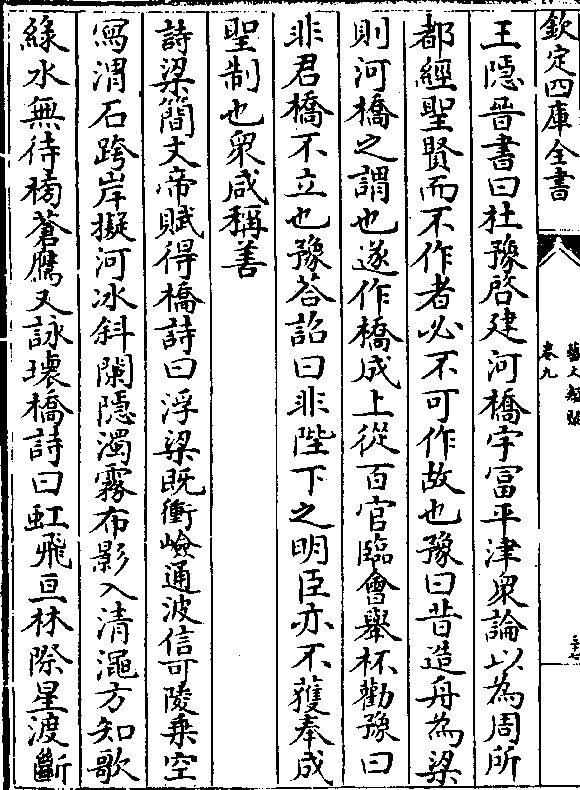 欽定四庫全書
藝文類聚
卷九
王隱晉書曰杜豫啓建河橋宇富平津衆論以為周所
都經聖賢而不作者必不可作故也豫曰昔造舟為梁
則河橋之謂也遂作橋成上從百官臨會舉杯勸豫曰
非君橋不立也豫荅詔曰非陛下之明臣亦不獲奉成
聖制也衆咸稱善
詩梁簡文帝賦得橋詩曰浮梁既衝嶮通波信可陵乗空
寫渭石跨岸擬河冰斜闌隱濁霧布影入清澠方知歌
緑水無待榜蒼鷹又詠壞橋詩曰虹飛亘林際星渡斷